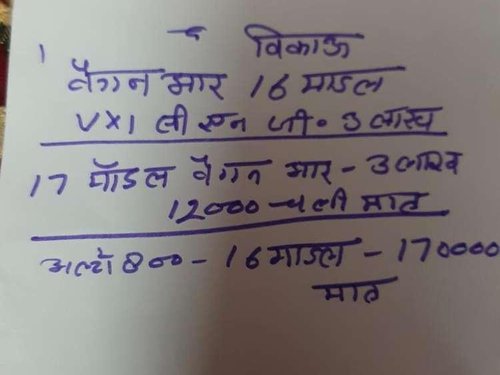 विकाऊ
वैगन आर 16 माडल
VXI सी एन जी. 3 लाख
17 मॉडल वैगन आर - 3 लाख
12000 - चली मात्र
अल्टो 800 - 16 माडल - 170000
मात्र